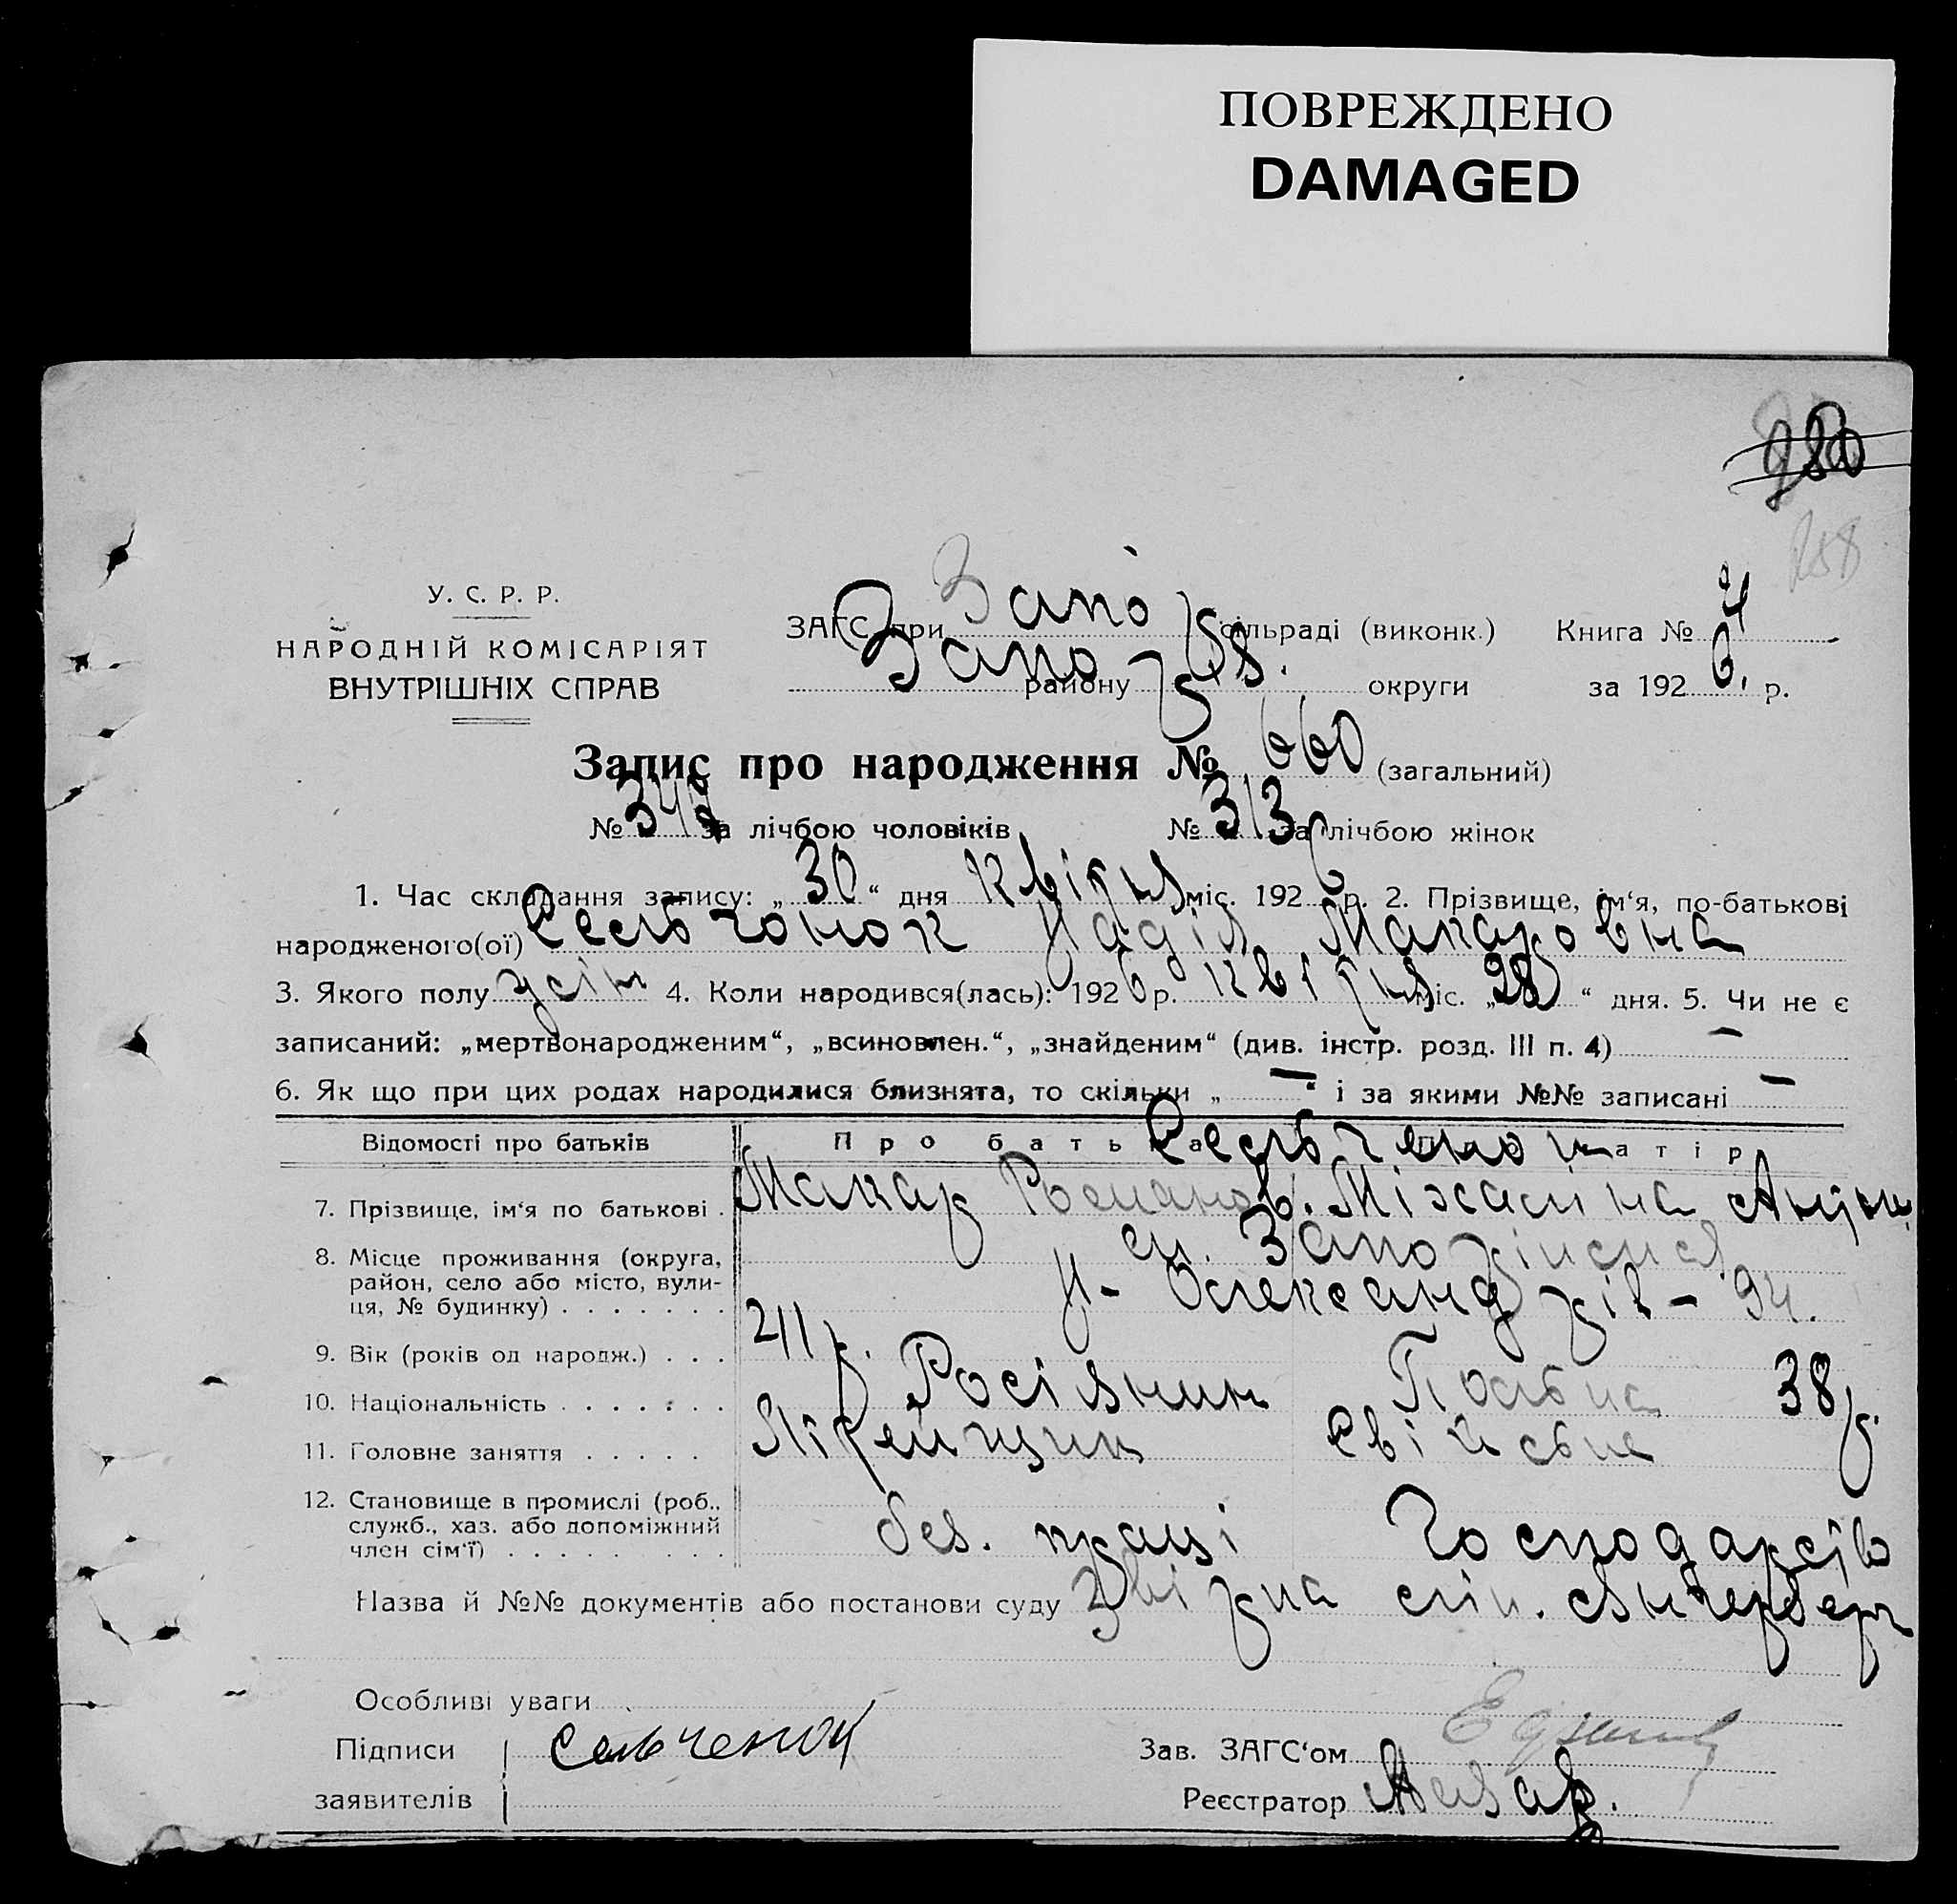 ПОВРЕЖДЕНО
DAMAGED
980
258
У. С. Р. Р.
НАРОДНІЙ КОМІСАРІЯТ
ВНУТРІШНІХ СПРАВ
ЗАГС при Запо сільраді (виконк.) Книга № 4
Запо району округи за 1926. р.
Запис про народження № 660 (загальний)
№ за лічбою чоловіків № 313 за лічбою жінок
1. Час складання запису: „30“ дня квітня міс. 1926 р. 2. Прізвище, ім‘я, по-батькові
народженого(ої) Сельчонок Надія Макаровна
3. Якого полу жін 4. Коли народився(лась): 1926 р. квітня міс. „28“ дня. 5. Чи не є
записаний: „мертвонародженим“, „всиновлен.“, „знайденим“ (див. інстр. розд. III п. 4) —
6. Як що при цих родах народилися близнята, то скільки „ — “ і за якими №№ записані —
Відомості про батьків Про батька Сельченок матір
7. Прізвище, ім‘я по батькові . Макар Романов. Міхаліна Антон.
8. Місце проживання (округа, район, село або місто, вулиця, № будинку) . . . . . . . Запо
Олександрів – 94.
9. Вік (років од народж.) . . . р. 38 р.
10. Національність . . . . . . . Росіянин Полька
11. Головне заняття . . . . . Літейщик Свійське
12. Становище в промислі (роб., служб., хаз. або допоміжний член сім‘ї) . . . . . . . . . без. праці Господарств
Назва й №№ документів або постанови суду
Особливі уваги
Підписи заявителів Сельченок
Зав. ЗАГС‘ом
Реєстратор